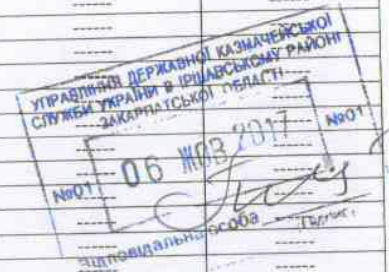 УПРАВЛІННЯ ДЕРЖАВНОЇ КАЗНАЧЕЙСЬКОЇ
СЛУЖБИ УКРАЇНИ В ІРШАВСЬКОМУ РАЙОНІ
ЗАКАРПАТСЬКОЇ ОБЛАСТІ
№01
06 ЖОВ 2017
№01
Відповідальна особа
(підпис)